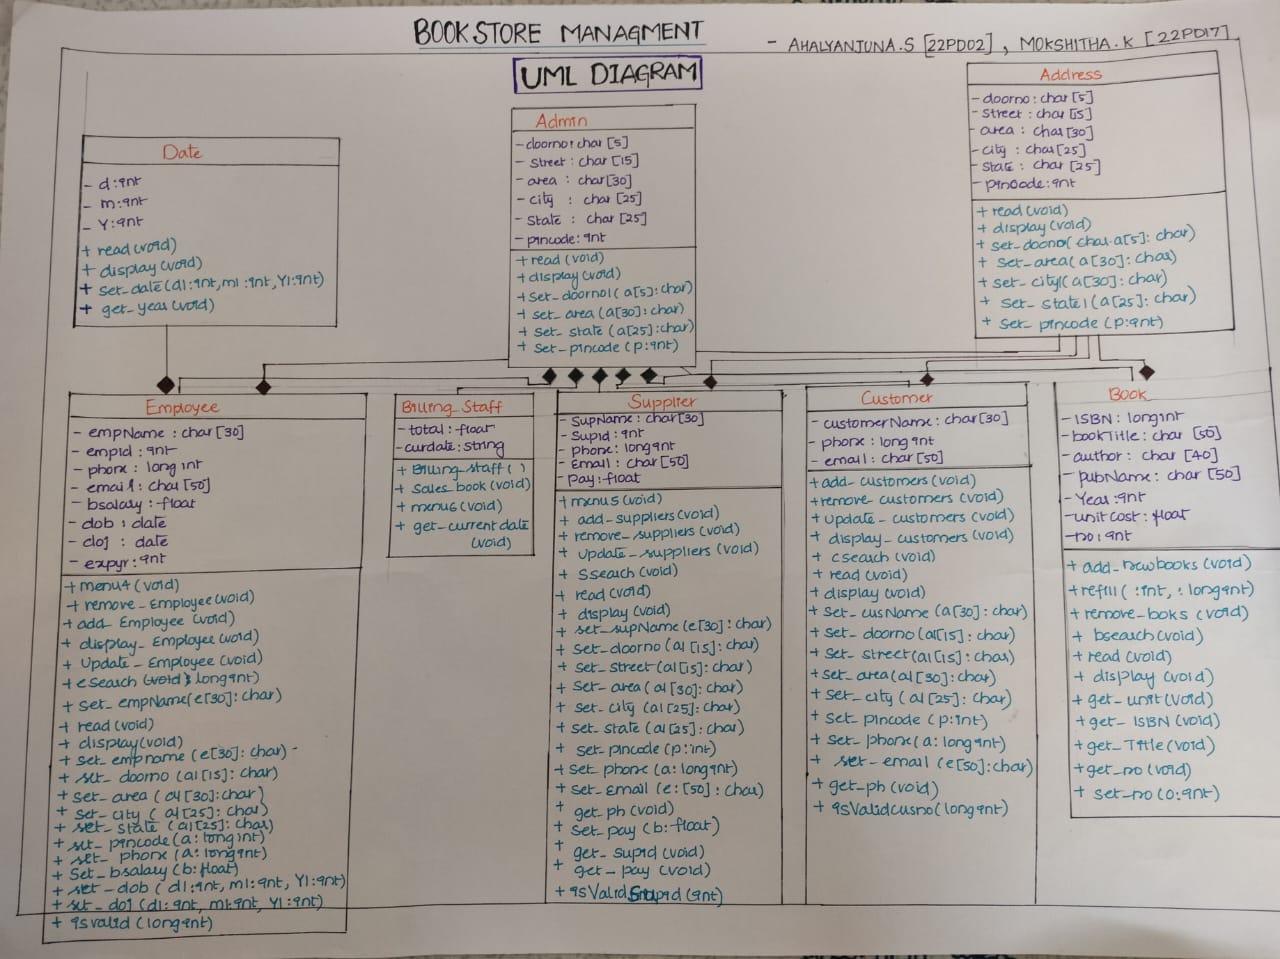 BOOKSTORE MANAGMENT
- AHALYANJUNA.S [22PD02] , MOKSHITHA.K [22PD17]
UML DIAGRAM
Date
- d:int
- m:int
- Y:int
+ read(void)
+ display(void)
+ set_date(d1:int,m1:int,Y1:int)
+ get_year(void)
Admin
- doorno: char [5]
- street: char [15]
- area : char[30]
- city : char [25]
- State : char [25]
- pincode: int
+ read (void)
+ display(void)
+ set_doorno1 (a[5]: char)
+ set_area (a[30]: char)
+ set_state (a[25]: char)
+ set_pincode (p:int)
Address
- doorno: char [5]
- Street: char [15]
- area : char [30]
- city : char [25]
- State : char [25]
- pincode: int
+ read(void)
+ display(void)
+ set_doono( char a[5]: char)
+ set_area(a[30]: char)
+ set_city1(a[30]: char)
+ set_state1(a[25]: char)
+ set_pincode (p:int)
Employee
- empName : char [30]
- empid : int
- phone : long int
- email : char [50]
- bsalary : float
- dob : date
- doj : date
- expyr: int
+ menu4 (void)
+ remove_Employee(void)
+ add_Employee (void)
+ display_Employee (void)
+ Update_Employee (void)
+ eSearch (void): longint)
+ set_empName(e[30]: char)
+ read (void)
+ display(void)
+ set_empname (e[30]: char)
+ set_doorno (a1[15]: char)
+ set_area (a1[30]: char)
+ set_city (a1[25]: char)
+ set_state (a1[25]: char)
+ set_pincode (a: longint)
+ set_phone (a: longint)
+ Set_bsalary (b: float)
+ set_dob (d1: int, m1: int, Y1: int)
+ set_doj (d1: int, m1:int, Y1: int)
+ isvalid (longint)
Billing_Staff
- total : float
- curdate: string
+ Billing_staff( )
+ sales_book(void)
+ menu6 (void)
+ get_current date
(void)
Supplier
- SupName : char [30]
- Supid : int
- phone : longint
- Email : char [50]
- pay: float
+ menu5 (void)
+ add_suppliers (void)
+ remove_suppliers (void)
+ update_suppliers (void)
+ Ssearch (void)
+ read (void)
+ display (void)
+ set_supName (e[30]: char)
+ set_doorno (a1[15]: char)
+ set_street (a1[15]: char)
+ set_area (a1[30]: char)
+ set_city (a1[25]: char)
+ set_state (a1[25]: char)
+ set_pincode (p: int)
+ set_phone (a: longint)
+ set_Email (e: [50]: char)
+ get_ph (void)
+ set_pay (b: float)
+ get_supid (void)
+ get_pay (void)
+ isValid (int)
Customer
- customerName : char [30]
- phone : long int
- email : char [50]
+ add_customers (void)
+ remove_customers (void)
+ update_customers (void)
+ display_customers (void)
+ csearch (void)
+ read (void)
+ display (void)
+ set_cusName (a[30]: char)
+ set_doorno (a1[15]: char)
+ set_street (a1[15]: char)
+ set_area (a1[30]: char)
+ set_city (a1[25]: char)
+ set_pincode (p: int)
+ set_phone (a: longint)
+ set_email (e[50]: char)
+ get_ph (void)
+ isValidcusno (longint)
Book
- ISBN : longint
- bookTitle : char [50]
- author : char [40]
- pubName : char [50]
- Year: int
- unitcost : float
- no: int
+ add_newbooks (void)
+ refill ( : int, : longint)
+ remove_boks (void)
+ bsearch (void)
+ read (void)
+ display (void)
+ get_unit (void)
+ get_ISBN (void)
+ get_Title (void)
+ get_no (void)
+ set_no (0: int)